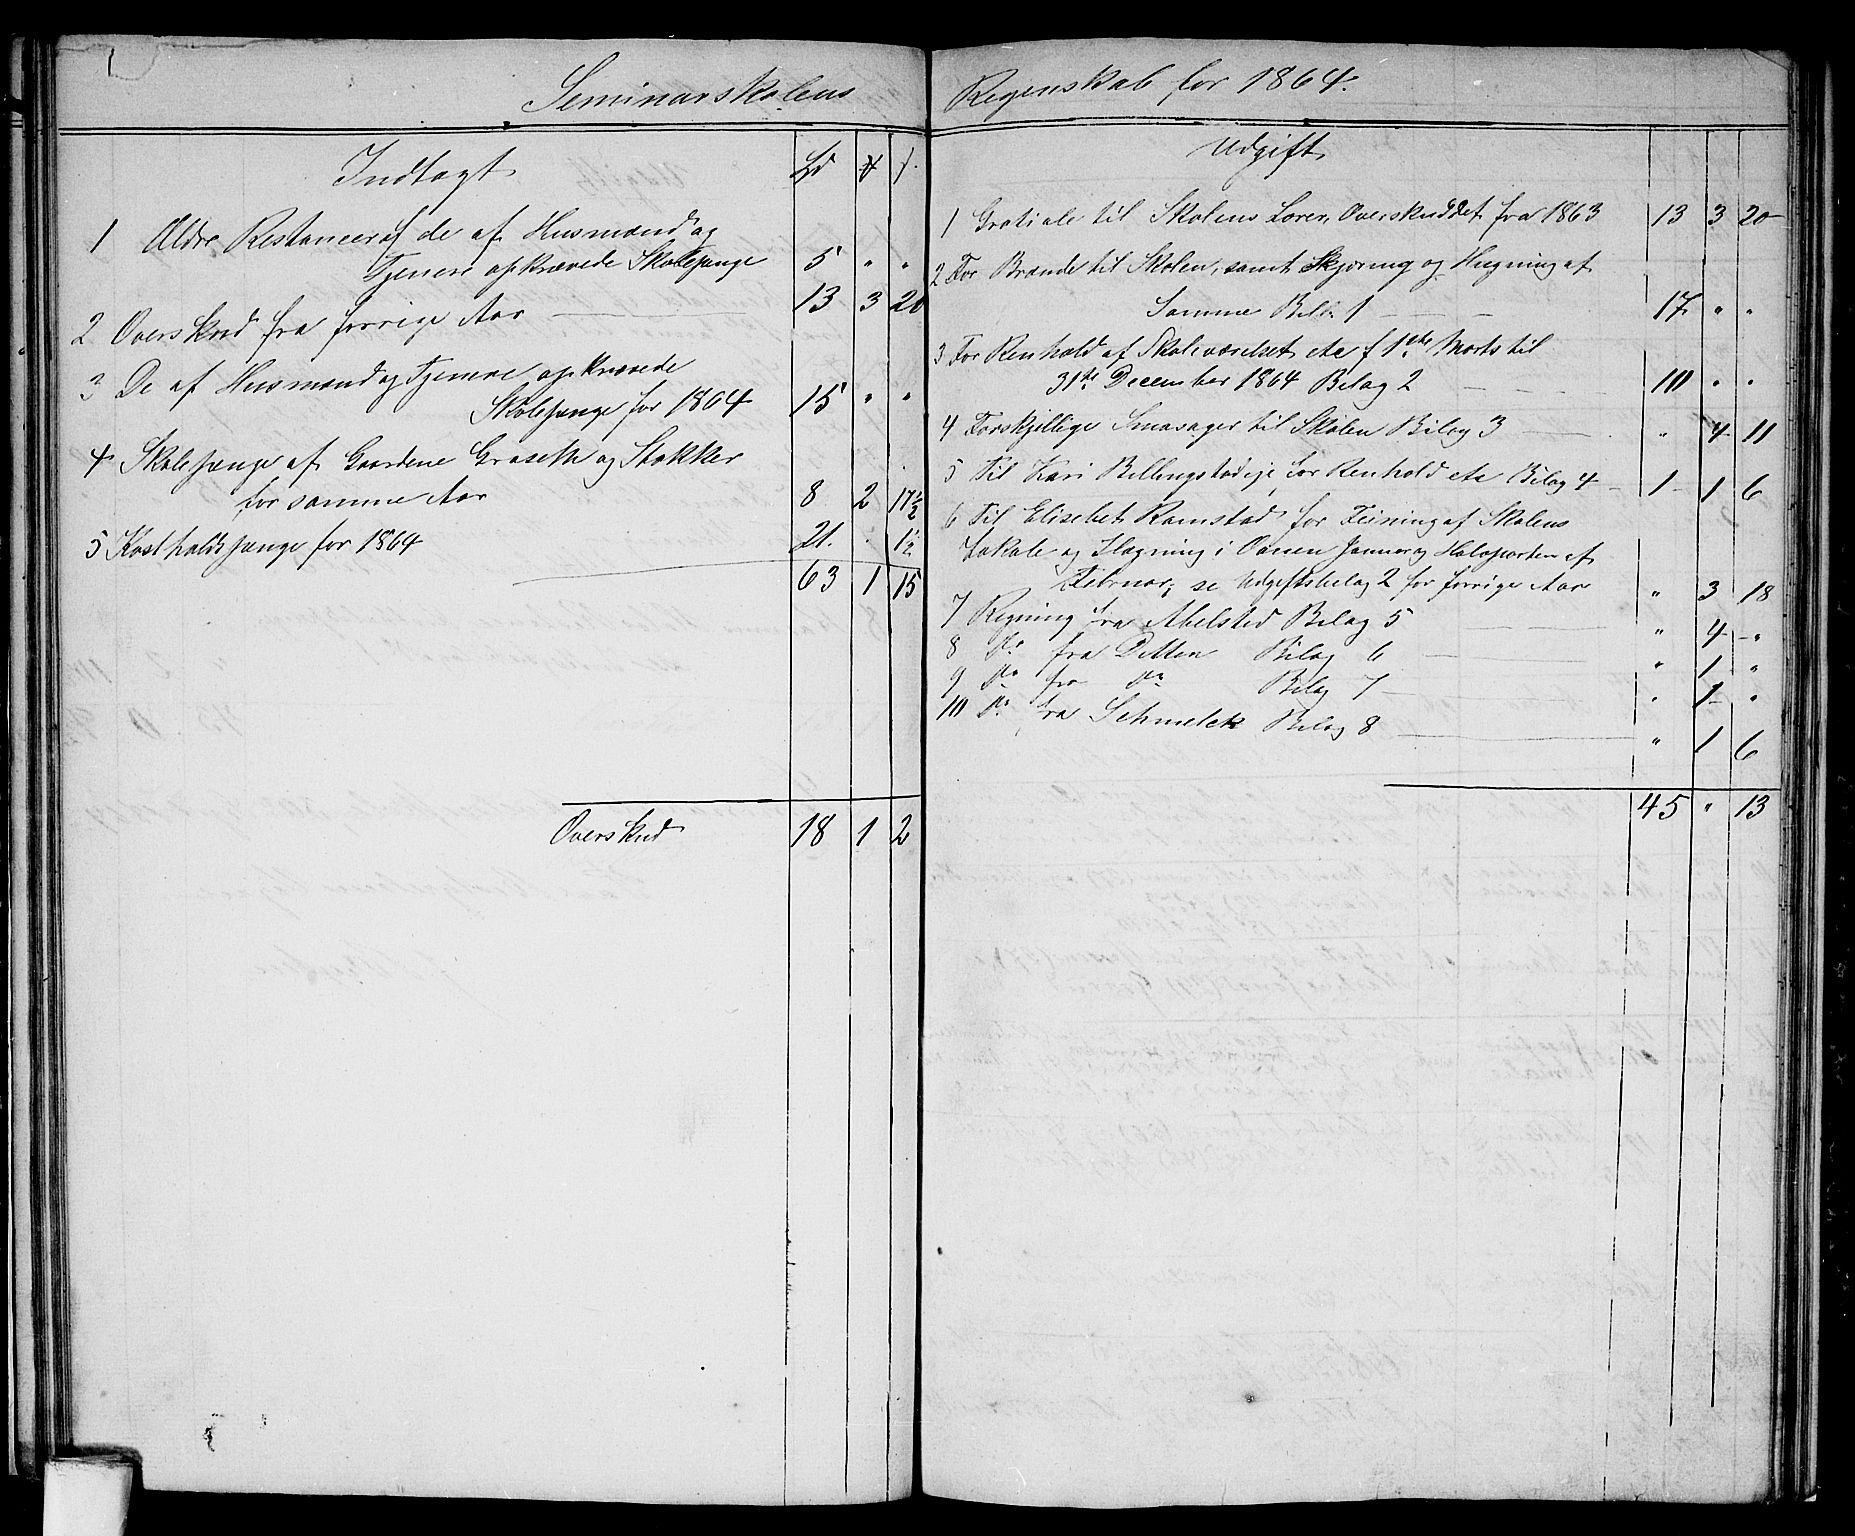 Seminarskolens
Indtægt Spd # s.
1 Ældre Restancer af de af Husmænd og
Tjenere opkrævede Skolepenge 5 " "
2 Overskud fra forrige Aar 13 3 20
3 De af Husmænd og Tjenere opkrævede
Skolepenge for 1864 15 " "
4 Skolepenge af Gaardene Graseth og Stokker
for samme Aar 8 2 17½
5 Kostholdspenge for 1864 21 . 1½
63 1 15
Overskud 18 1 2
Regenskab for 1864.
Udgift
1 Gratiale til Skolens Lærer, Overskuddet fra 1863 13 3 20
2 For Brænde til Skolen, samt Skjæring og Hugning af
Samme Bill. 1 17 " "
3 For Renhold af Skoleværelset etc f 1ste Marts til
31te December 1864 Bilag 2 10 " "
4 Forskjellige Smaasager til Skolen Bilag 3 " 4 11
5 Til Kari Billingstadeje for Renhold etc Bilag 4 1 1 6
6 Til Elisebet Ramstad for Feining af Skolens
Lokale og Ilægning i Ovnen Januar og Halvparten af
Februar, se Udgiftsbilag 2 for forrige Aar " 3 18
7 Regning fra Abelsted Bilag 5 " 4 "
8 Do fra Ditten Bilag 6 " 1 "
9 Do fra Do Bilag 7 " 1 "
10 Do fra Schmelck Bilag 8 " 1 6
45 " 13